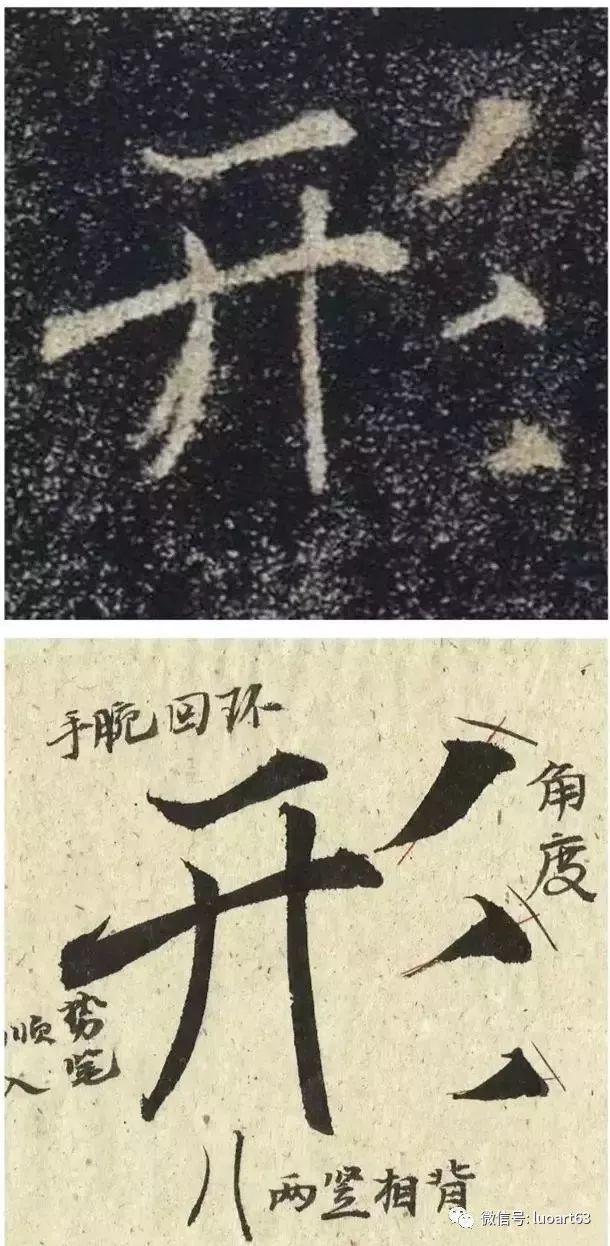 形
手腕回环
形
角度
顺势
入笔
两竖相背
微信号: luoart63